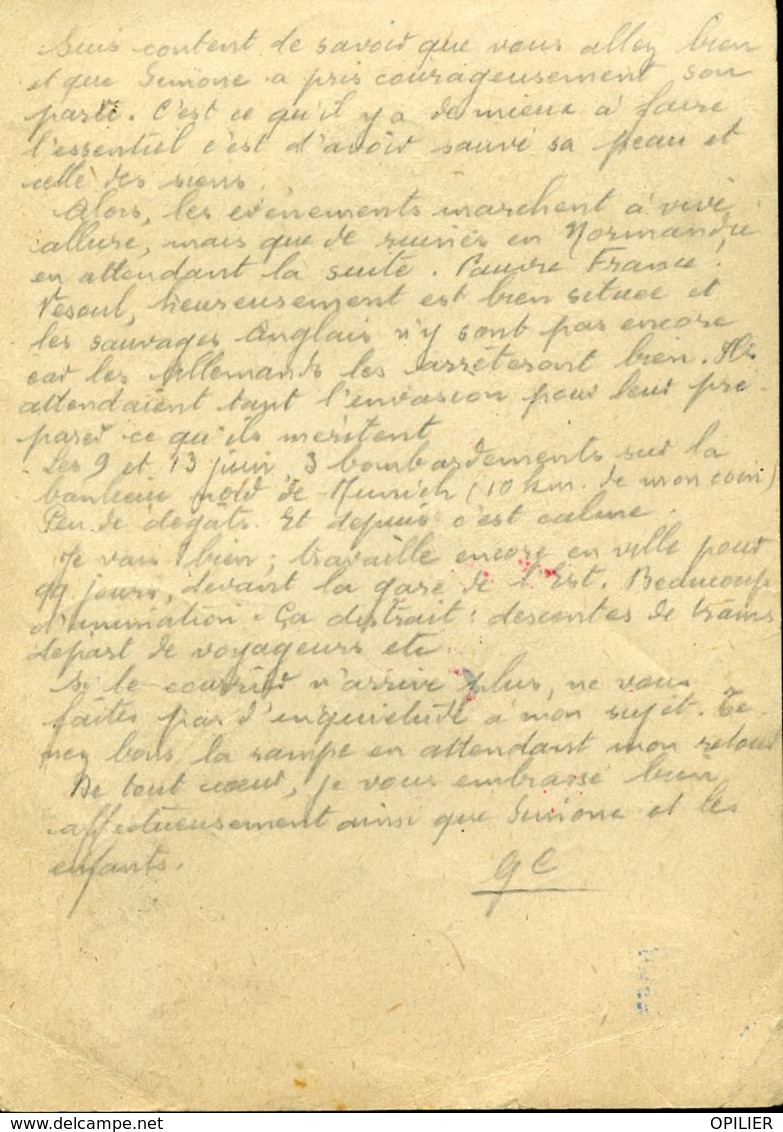 Suis content de savoir que vous allez bien
et que Simone a pris courageusement son
parti. C'est ce qu'il y a de mieux à faire
l'essentiel c'est d'avoir sauvé sa peau et
celle des siens.
Alors, les événements marchent à vive
allure, mais que de ruines en Normandie
en attendant la suite. Pauvre France!
Vesoul, heureusement est bien située et
les sauvages Anglais n'y sont pas encore
car les Allemands les arrêteront bien. Ils
attendaient tant l'invasion pour leur pré-
parer ce qu'ils méritent
Les 9 et 13 juin, 3 bombardements sur la
banlieue nord de Munich (10 km. de mon coin)
Peu de dégâts. Et depuis c'est calme.
Je vais bien; travaille encore en ville pour
jours, devant la gare de l'Est. Beaucoup
d'animation. Ça distrait: descentes de trains
départ de voyageurs etc
Si le courrier n'arrive plus, ne vous
faites pas d'inquiétude à mon sujet. Te-
nez bons la rampe en attendant mon retour
De tout coeur, je vous embrasse bien
affectueusement ainsi que Simone et les
enfants.
GC
OPILIER